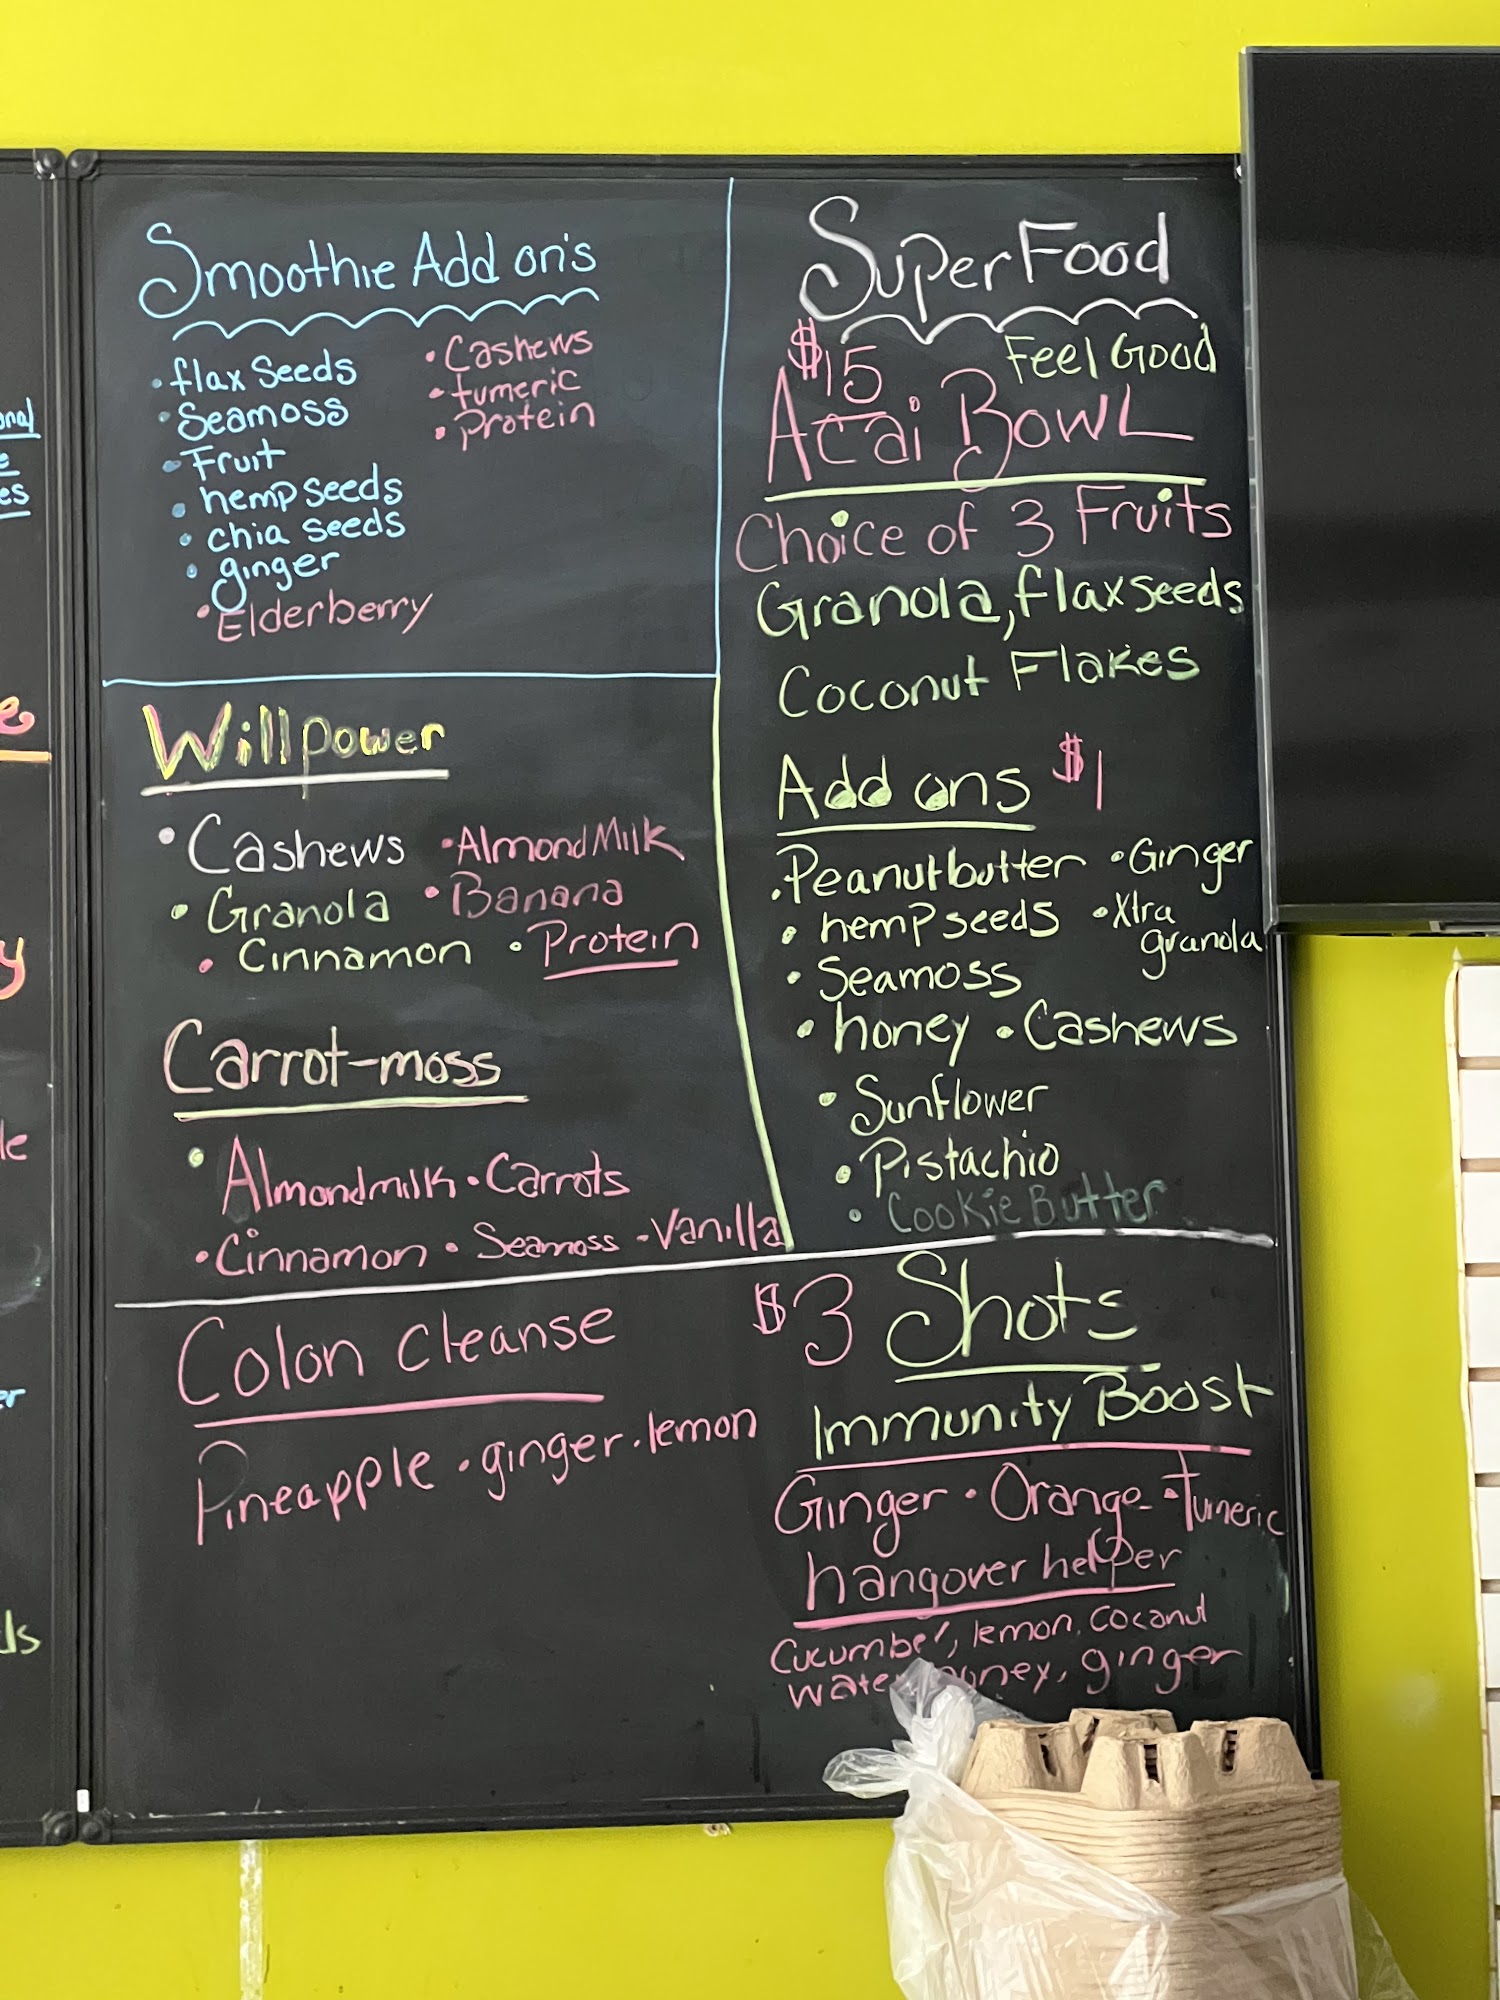 Smoothie Add on's
• flax Seeds
• Seamoss
• Fruit
• hemp seeds
• chia seeds
• ginger
• Elderberry
• Cashews
• tumeric
• Protein
Willpower
• Cashews • Almond Milk
• Granola • Banana
• Cinnamon • Protein
Carrot-moss
• Almondmilk • Carrots
• Cinnamon • Seamoss • Vanilla
Colon cleanse
Pineapple • ginger • lemon
SuperFood
$15 Feel Good
Acai Bowl
Choice of 3 Fruits
Granola, flaxseeds
Coconut Flakes
Add ons $1
• Peanutbutter • Ginger
• hemp seeds • Xtra
granola
• Seamoss
• honey • Cashews
• Sunflower
• Pistachio
• Cookie Butter
$3 Shots
Immunity Boost
Ginger • Orange • Tumeric
hangover helper
Cucumber, lemon, coconut
water, honey, ginger